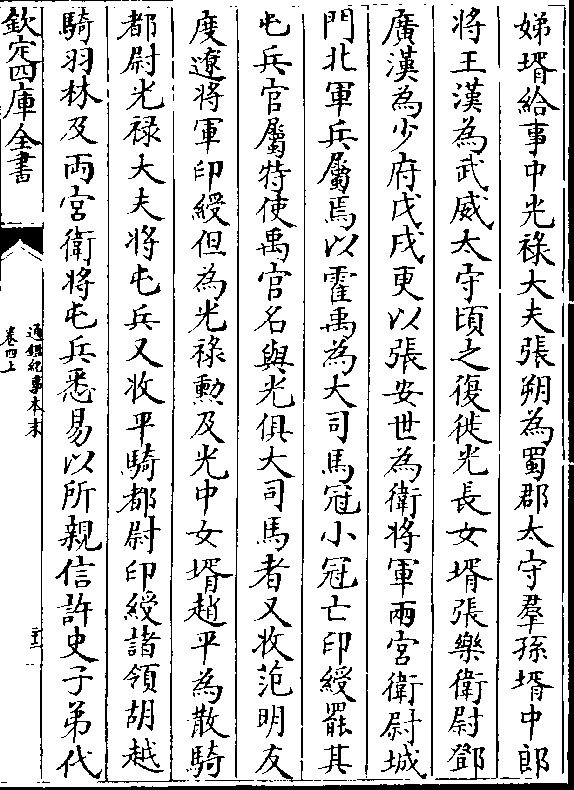 娣壻給事中光祿大夫張朔為蜀郡太守羣孫壻中郎
將王漢為武威太守頃之復徙光長女壻張樂衛尉鄧
廣漢為少府戊戌更以張安世為衛將軍兩宮衛尉城
門北軍兵屬焉以霍禹為大司馬冠小冠亡印綬罷其
屯兵官屬特使禹官名與光俱大司馬者又收范明友
度遼將軍印綬但為光祿勲及光中女壻趙平為散騎
都尉光祿大夫將屯兵又收平騎都尉印綬諸領胡越
騎羽林及兩宮衛將屯兵悉易以所親信許史子弟代
欽定四庫全書
通鑑紀事本末
卷四上